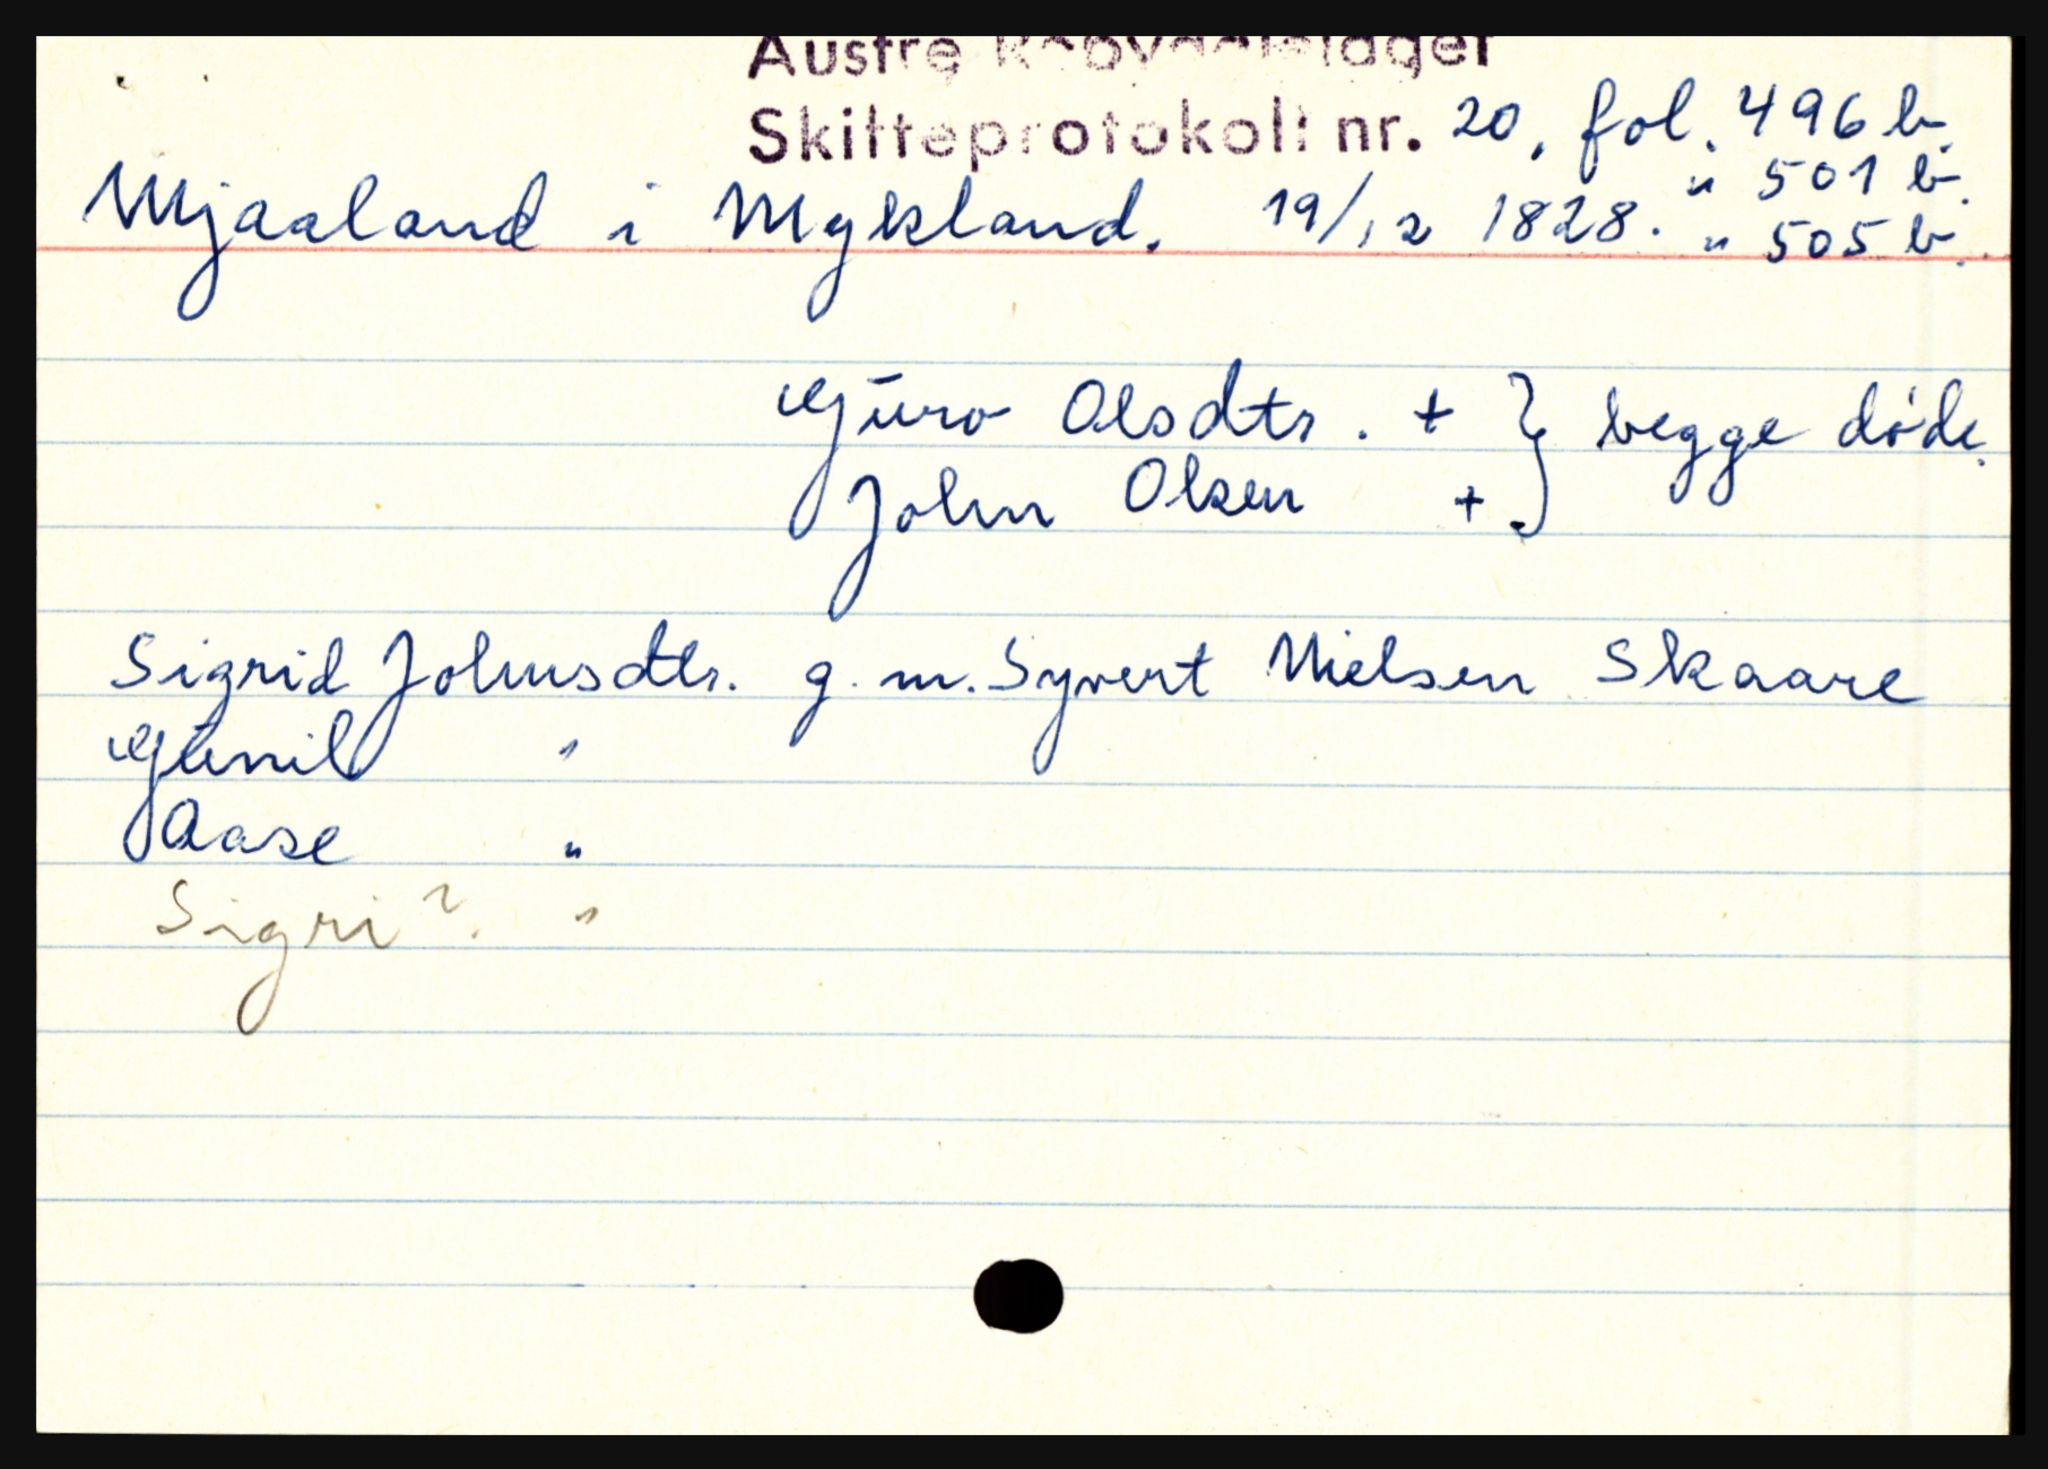 Austre Råbyggjelager
Skifteprotokoll nr. 20, fol. 496 b.
" 501 b.
Mjaaland i Mykland. 19/12 1828. " 505 b.
Guro Olsdtr. + } begge døde.
John Olsen +
Sigrid Johnsdtr. g. m. Syvert Nielsen Skaare
Gunil "
Aase "
Sigri? "